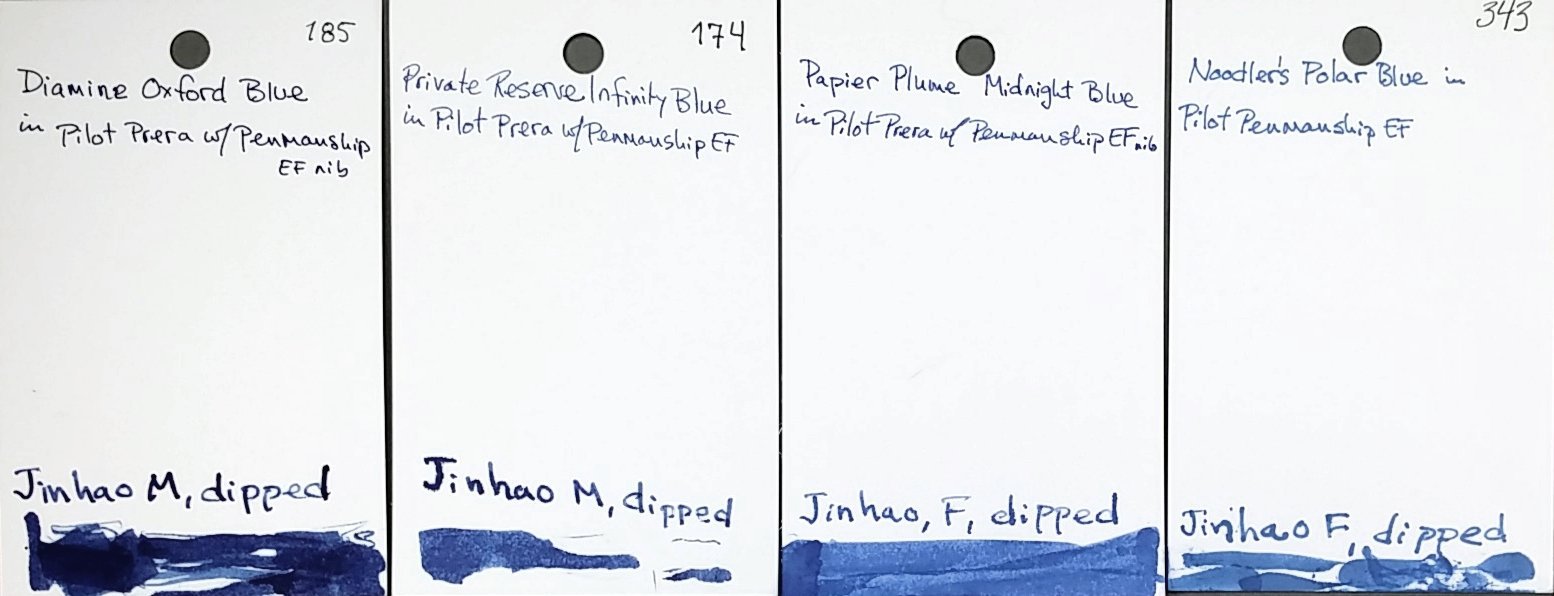 185
Diamine Oxford Blue
in Pilot Prera w/ Penmanship
EF nib
Jinhao M, dipped
174
Private Reserve Infinity Blue
in Pilot Prera w/ Penmanship EF
Jinhao M, dipped
Papier Plume Midnight Blue
in Pilot Prera w/ Penmanship EF nib
Jinhao, F, dipped
343
Noodler's Polar Blue in
Pilot Penmanship EF
Jinhao F, dipped